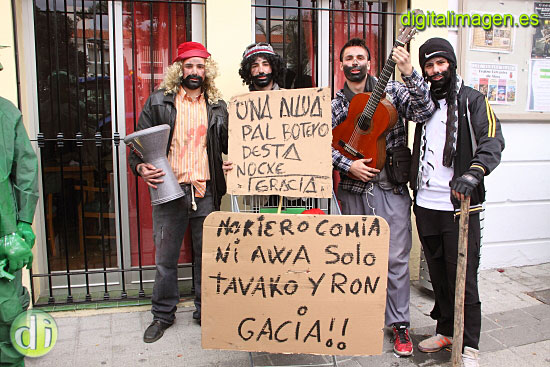 digitalimagen.es
UNA AUUA
PAL BOTERO
DESTA
NOCXE
IGRACIA
NOKIERO COMIA
NI AUUA SOLO
TAVAKO Y RON
O
GACIA!!
di